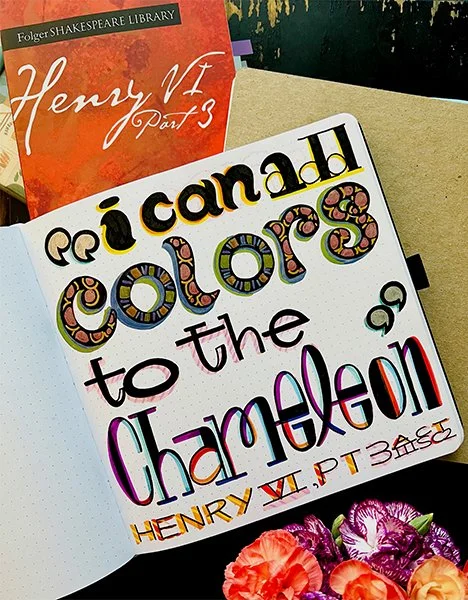 Folger SHAKESPEARE LIBRARY
Henry VI
Part 3
“i can add
colors
to the
Chameleon”
HENRY VI, PT 3 ACT
iii SC 2